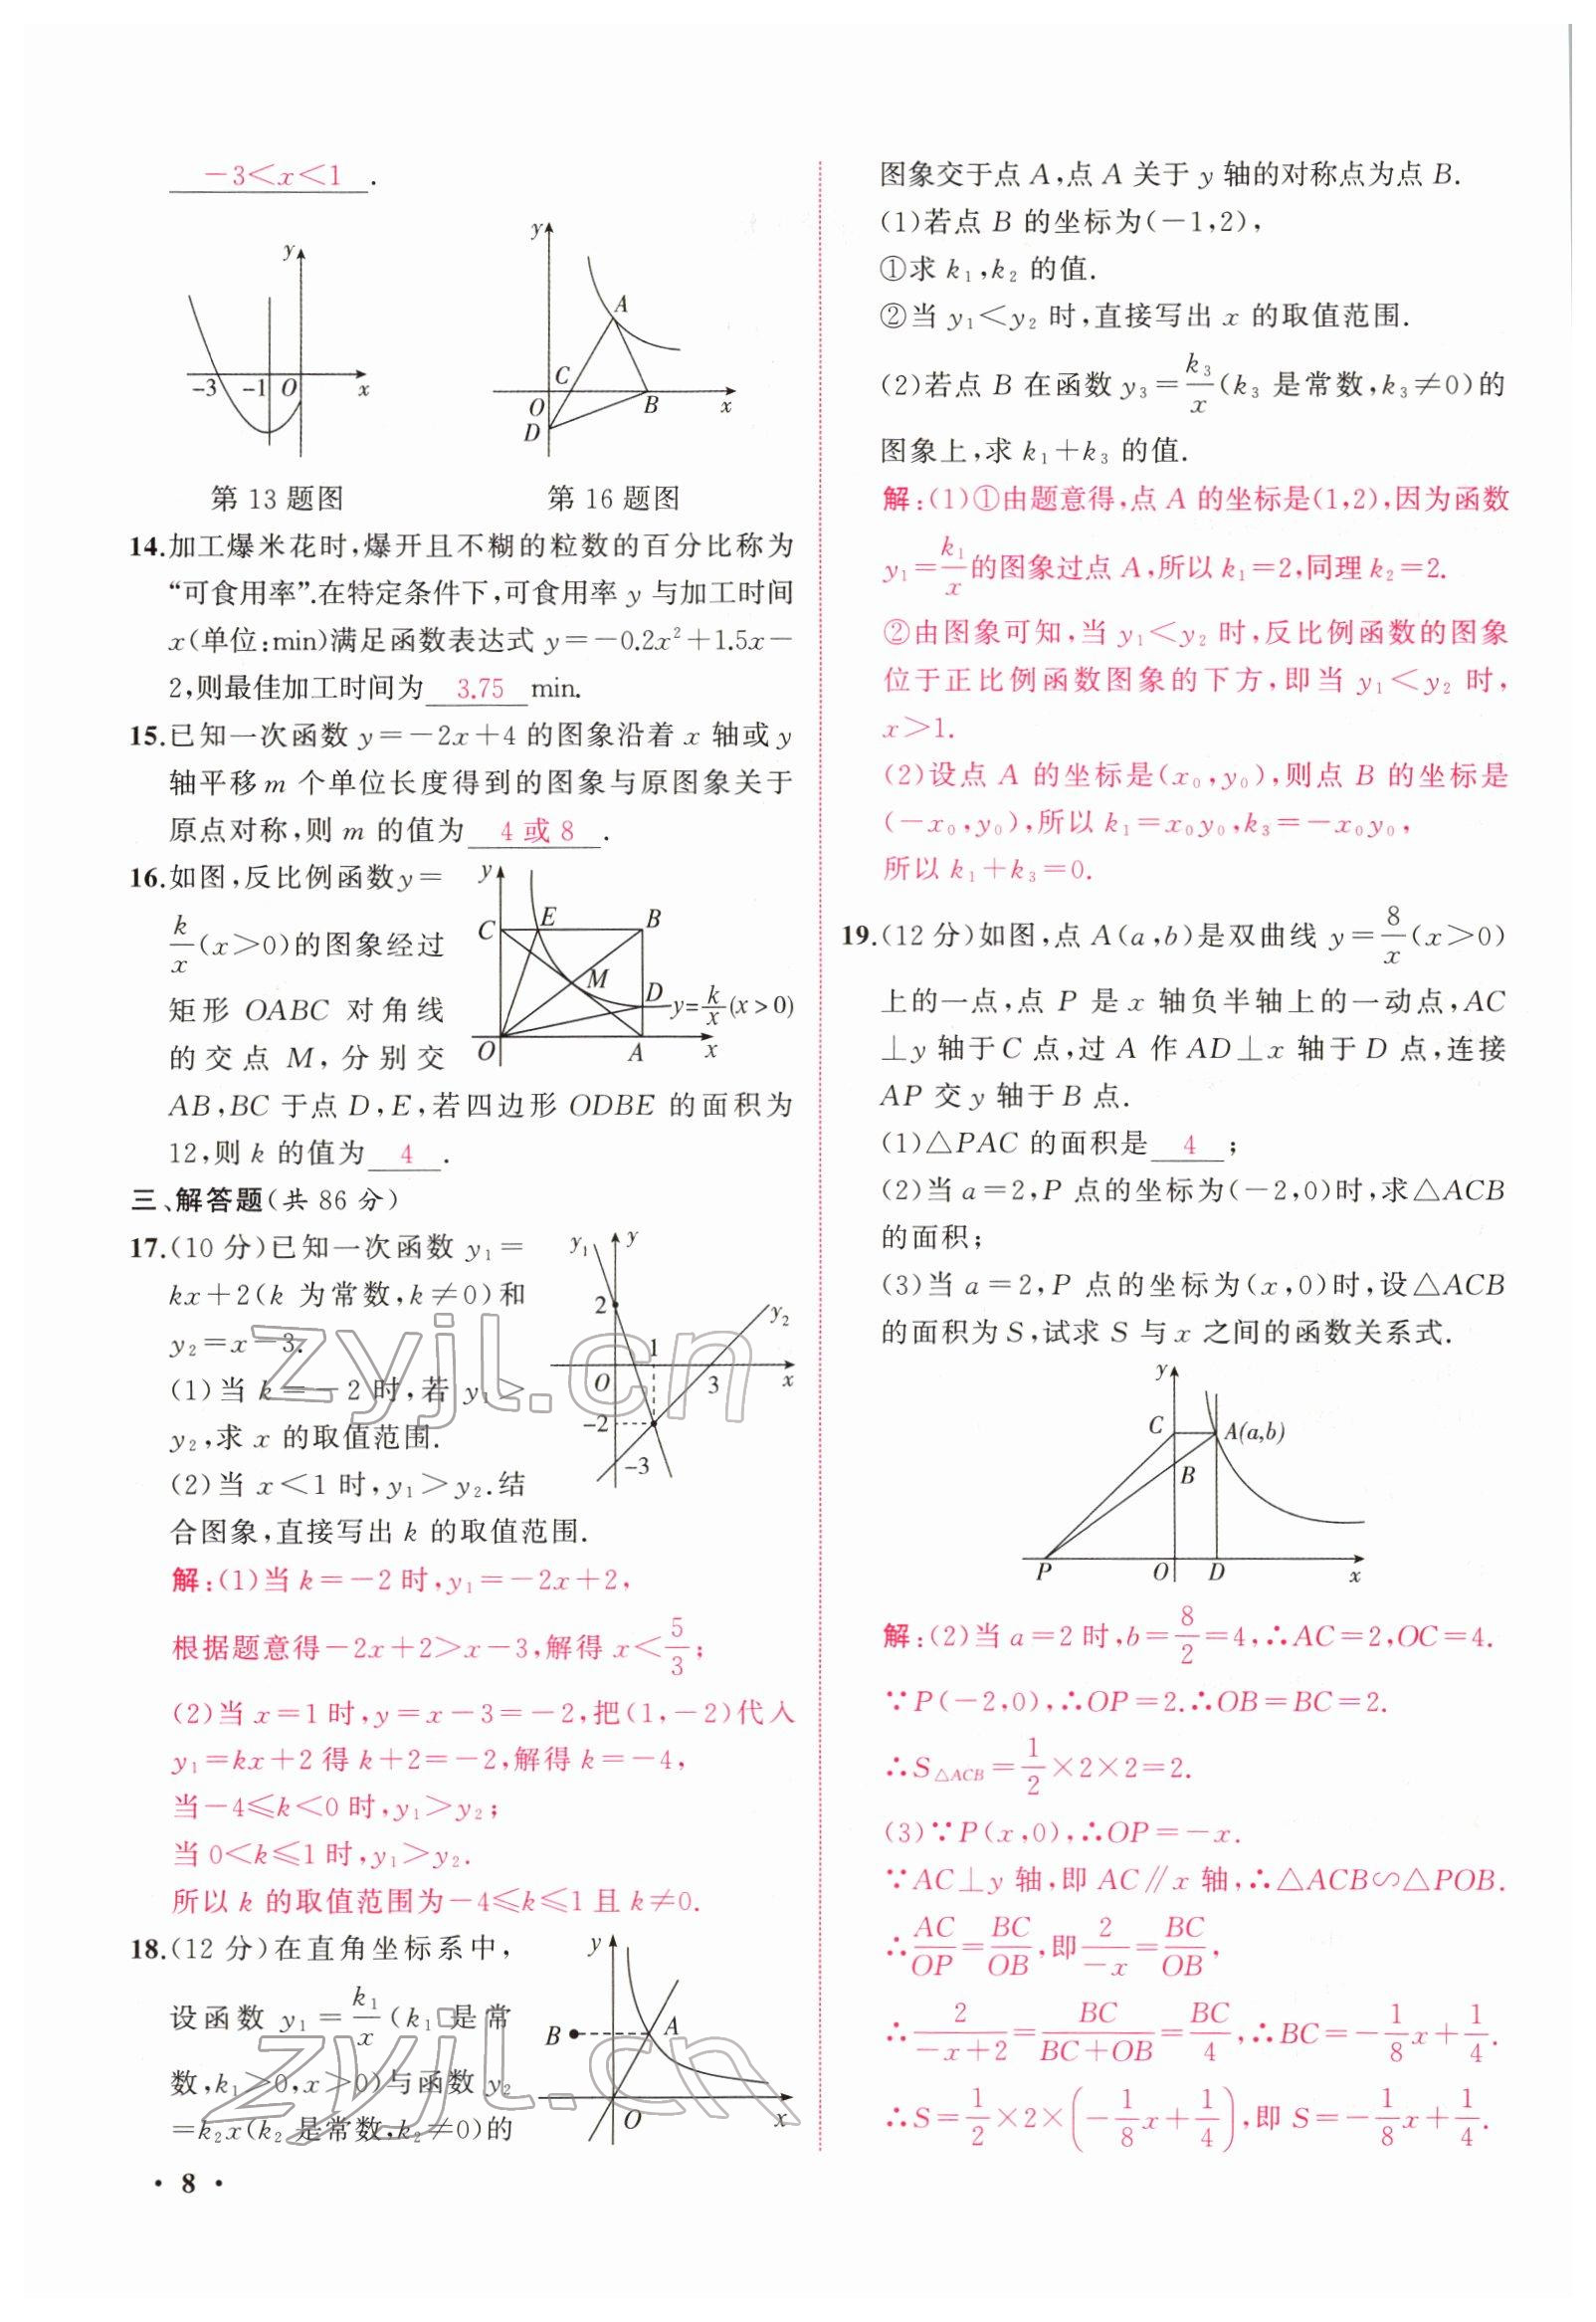 －3＜x＜1.
y
－3 －1 O x
第 13 题图
y
A
C
O B x
D
第 16 题图
14.加工爆米花时,爆开且不糊的粒数的百分比称为
“可食用率”.在特定条件下,可食用率 y 与加工时间
x(单位:min)满足函数表达式 y＝－0.2x²＋1.5x－
2,则最佳加工时间为 3.75 min.
15.已知一次函数 y＝－2x＋4 的图象沿着 x 轴或 y
轴平移 m 个单位长度得到的图象与原图象关于
原点对称,则 m 的值为 4 或 8 .
16.如图,反比例函数y＝
k/x(x＞0)的图象经过
矩形 OABC 对角线
的交点 M,分别交
AB,BC 于点 D,E,若四边形 ODBE 的面积为
12,则 k 的值为 4 .
y
C E B
M
D y=k/x(x>0)
O A x
三、解答题(共 86 分)
17.(10 分)已知一次函数 y₁＝
kx＋2(k 为常数,k≠0)和
y₂＝x－3.
(1)当 k＝－2 时,若 y₁＞
y₂,求 x 的取值范围.
(2)当 x＜1 时,y₁＞y₂.结
合图象,直接写出 k 的取值范围.
y₁ y
2 y₂
1
O 3 x
－2
－3
解:(1)当 k＝－2 时,y₁＝－2x＋2,
根据题意得－2x＋2＞x－3,解得 x＜5/3;
(2)当 x＝1 时,y＝x－3＝－2,把(1,－2)代入
y₁＝kx＋2 得 k＋2＝－2,解得 k＝－4,
当－4≤k＜0 时,y₁＞y₂;
当 0＜k≤1 时,y₁＞y₂.
所以 k 的取值范围为－4≤k≤1 且 k≠0.
18.(12 分)在直角坐标系中,
设函数 y₁＝k₁/x(k₁ 是常
数,k₁＞0,x＞0)与函数 y₂
＝k₂x(k₂ 是常数,k₂≠0)的
y
B A
O x
zyjl.cn
zyjl.cn
• 8 •
图象交于点 A,点 A 关于 y 轴的对称点为点 B.
(1)若点 B 的坐标为(－1,2),
①求 k₁,k₂ 的值.
②当 y₁＜y₂ 时,直接写出 x 的取值范围.
(2)若点 B 在函数 y₃＝k₃/x(k₃ 是常数,k₃≠0)的
图象上,求 k₁＋k₃ 的值.
解:(1)①由题意得,点 A 的坐标是(1,2),因为函数
y₁＝k₁/x的图象过点 A,所以 k₁＝2,同理 k₂＝2.
②由图象可知,当 y₁＜y₂ 时,反比例函数的图象
位于正比例函数图象的下方,即当 y₁＜y₂ 时,
x＞1.
(2)设点 A 的坐标是(x₀,y₀),则点 B 的坐标是
(－x₀,y₀),所以 k₁＝x₀y₀,k₃＝－x₀y₀,
所以 k₁＋k₃＝0.
19.(12 分)如图,点 A(a,b)是双曲线 y＝8/x(x＞0)
上的一点,点 P 是 x 轴负半轴上的一动点,AC
⊥y 轴于C 点,过 A 作 AD⊥x 轴于 D 点,连接
AP 交 y 轴于 B 点.
(1)△PAC 的面积是 4 ;
(2)当 a＝2,P 点的坐标为(－2,0)时,求△ACB
的面积;
(3)当 a＝2,P 点的坐标为(x,0)时,设△ACB
的面积为 S,试求 S 与 x 之间的函数关系式.
y
C A(a,b)
B
P O D x
解:(2)当 a＝2 时,b＝8/2＝4,∴AC＝2,OC＝4.
∵P(－2,0),∴OP＝2.∴OB＝BC＝2.
∴S△ACB＝1/2×2×2＝2.
(3)∵P(x,0),∴OP＝－x.
∵AC⊥y 轴,即 AC∥x 轴,∴△ACB∽△POB.
∴AC/OP＝BC/OB,即2/－x＝BC/OB,
∴2/－x＋2＝BC/BC＋OB＝BC/4,∴BC＝－1/8x＋1/4.
∴S＝1/2×2×(－1/8x＋1/4),即 S＝－1/8x＋1/4.